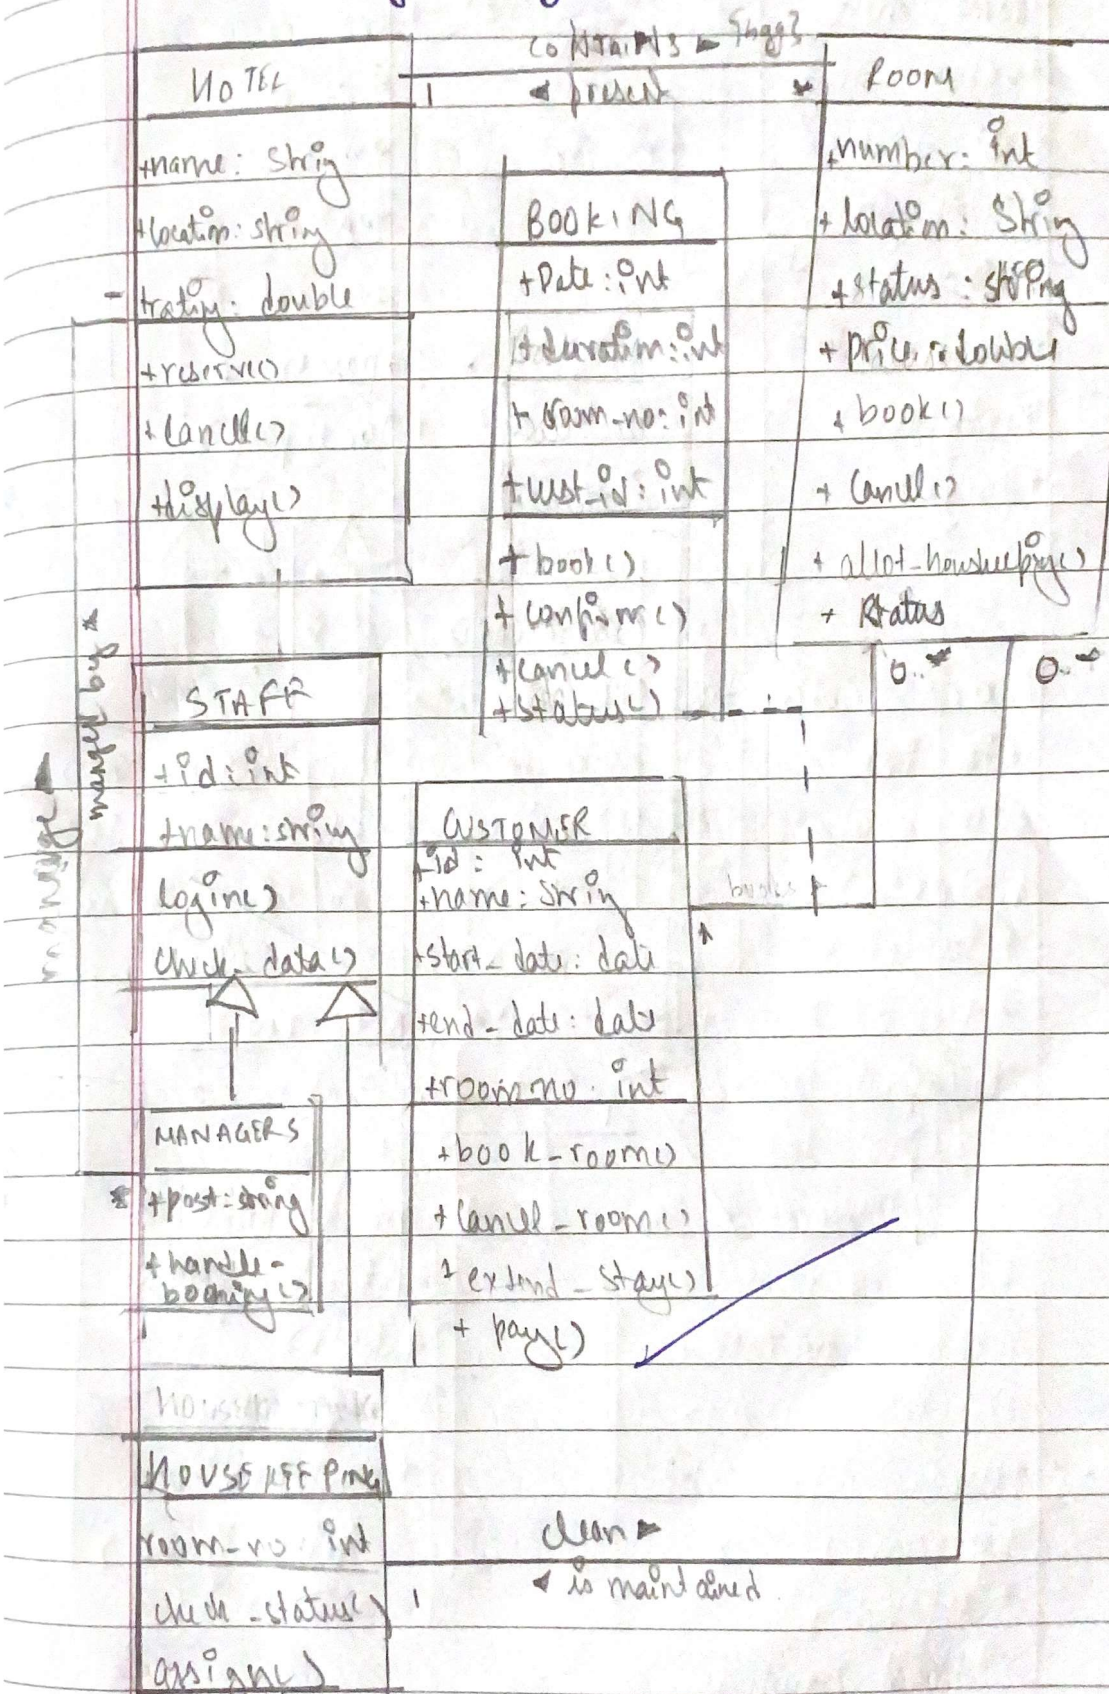 HOTEL
+name: String
+location: string
+rating: double
+reserve()
+cancel()
+display()
contains ►
1 ◄ present *
ROOM
+number: int
+location: String
+status: string
+price: double
+book()
+cancel()
+allot_housekeeping()
+ status
0..* 0..*
BOOKING
+Date: int
+duration: int
+room_no: int
+cust_id: int
+book()
+confirm()
+cancel()
+status()
manage ►
STAFF
+id: int
+name: string
login()
check_data()
CUSTOMER
+id: int
+name: String
+start_date: date
+end_date: date
+room_no: int
+book_room()
+cancel_room()
+extend_stay()
+ pay()
books
MANAGERS
* +post: string
+handle_
booking()
HOUSEKEEPING
room_no int
check_status()
assign()
clean ►
1 ◄ is maintained